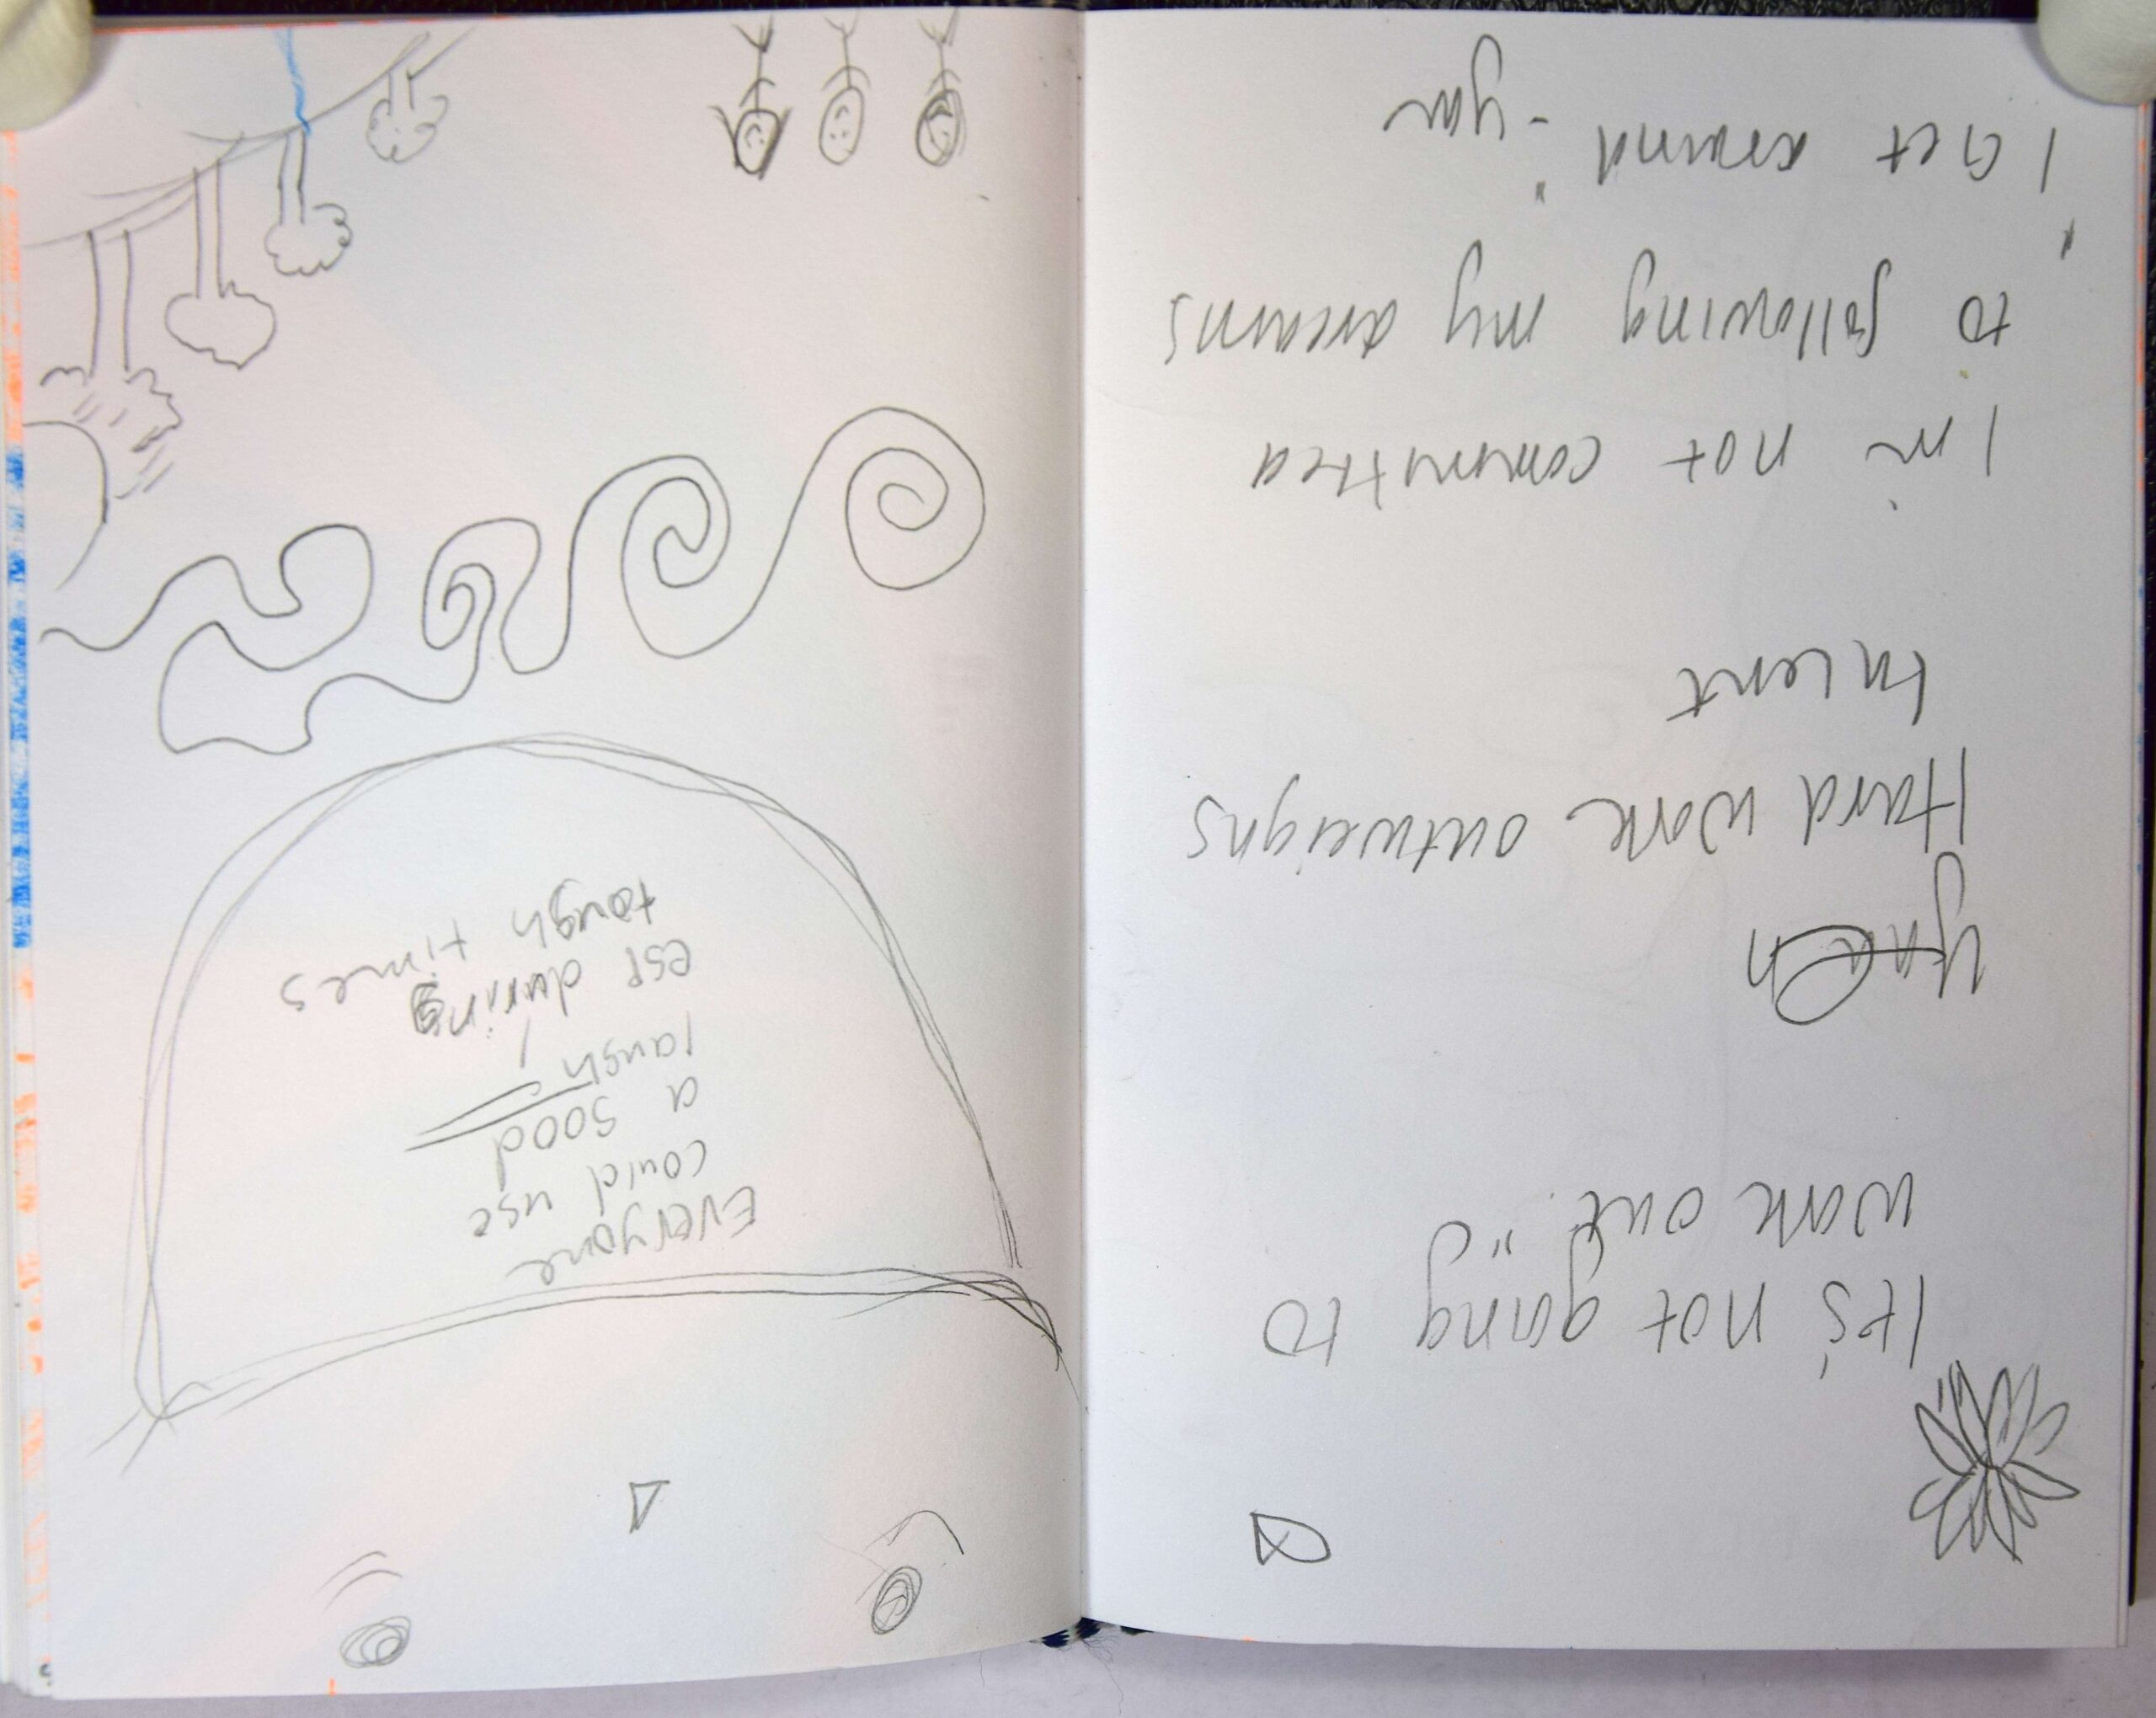 It's not going to
work out."
Hard work outweighs
talent
I'm not committed
to following my dreams
"I Get around" - you
Everyone
could use
a good
laugh
esp during
tough times